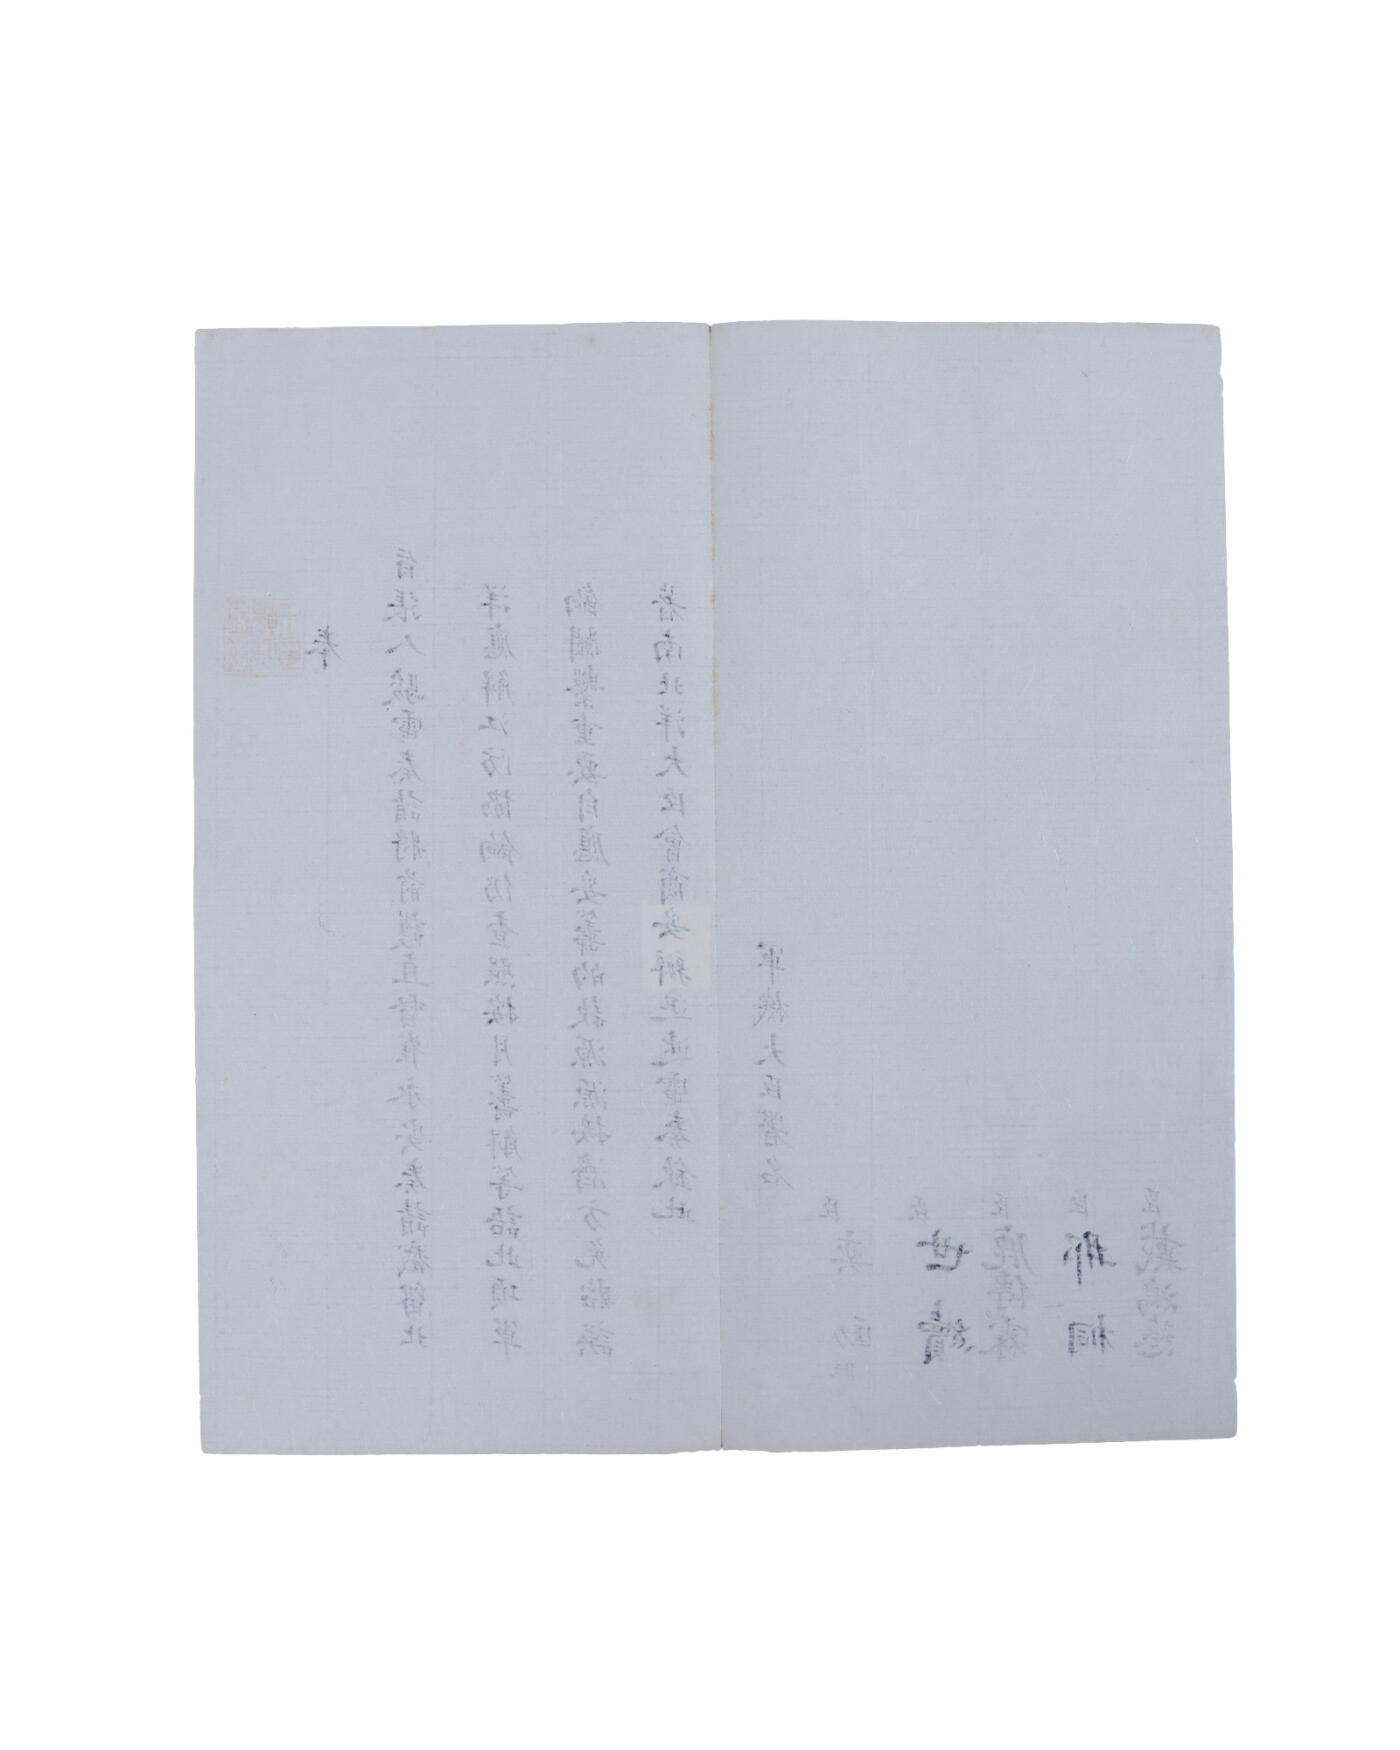 奉
旨張人駿電奏請將前護直督崔永安奏請截留北
洋應解江防協餉仍查照按月籌解等語此項軍
餉關繫重要自應妥籌的款源源接濟方免貽誤
着南北洋大臣會商妥辦迅速電奏欽此
軍機大臣署名
臣奕劻
臣世續
臣鹿傳霖
臣那桐
臣戴鴻慈